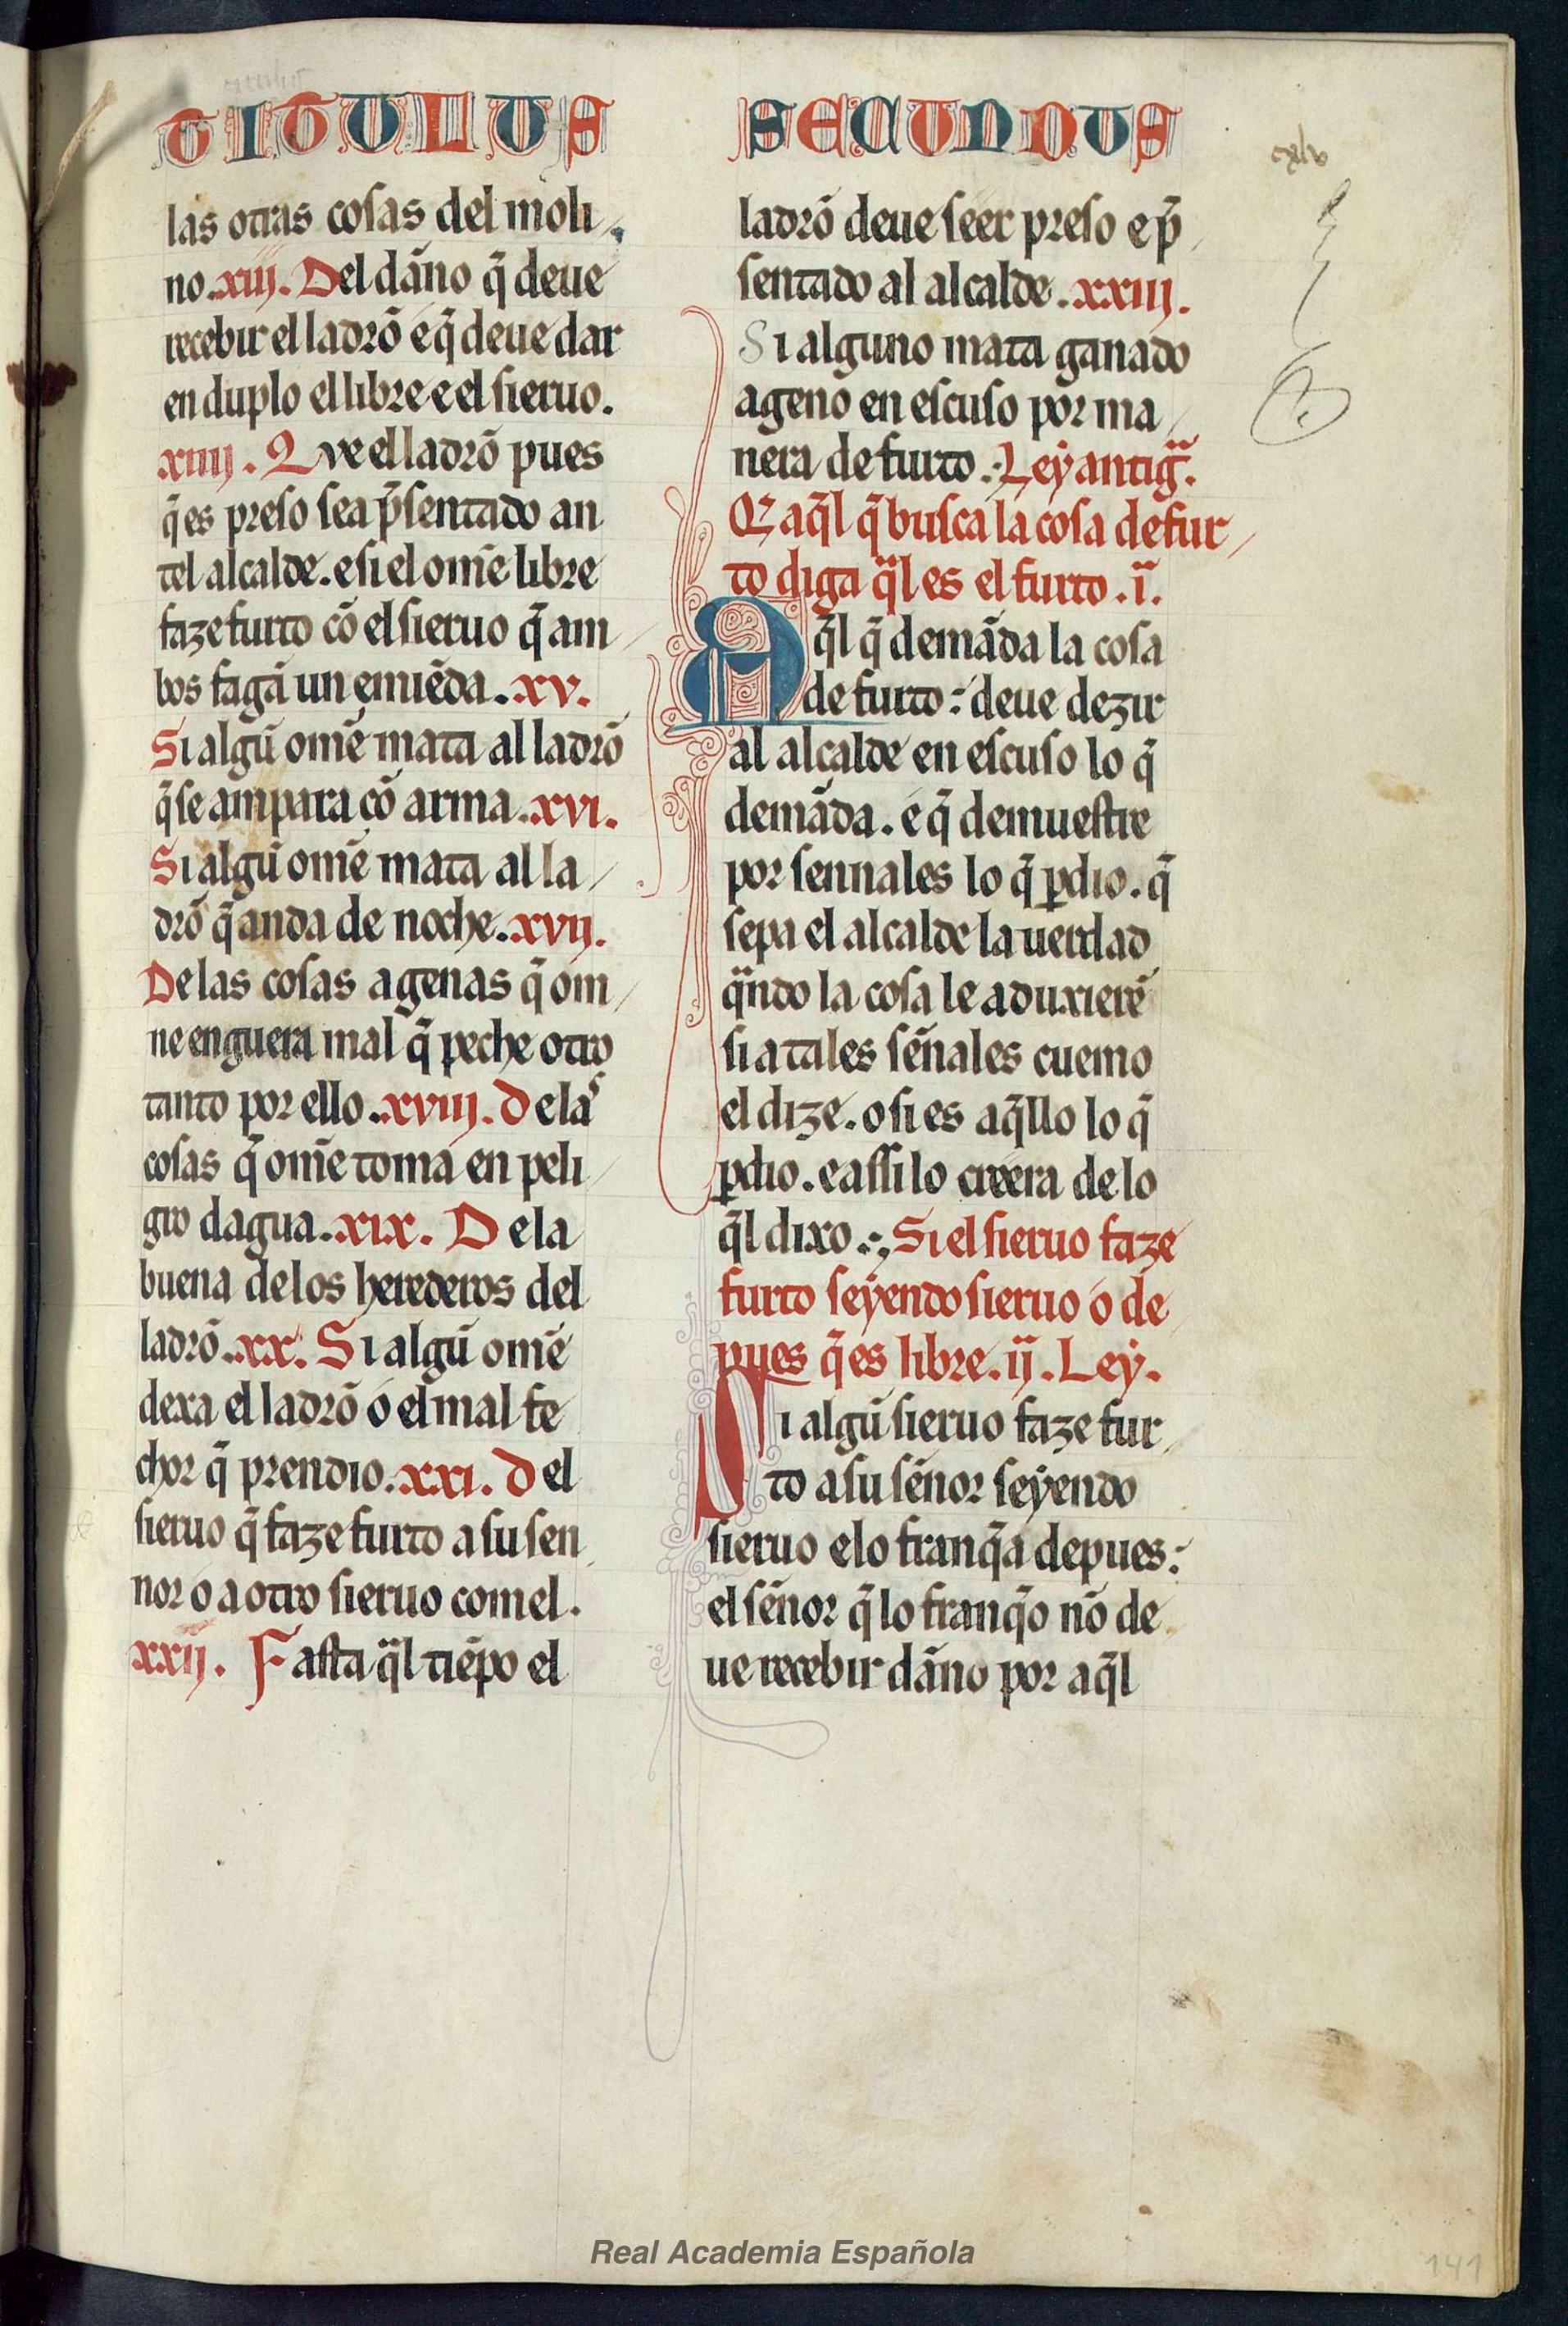 TITULUS SECUNDUS
cxlv
las otras cosas del moli
no. xiij. Del dãno q̃ deue
recebir el ladrõ e q̃ deue dar
en duplo el libre e el sieruo.
xiiij. Que el ladrõ pues
q̃ es preso sea p̃sentado an
tel alcalde. e si el om̃e libre
faze furto cõ el sieruo q̃ am
bos fagã un emiẽda. xv.
Si algũ om̃e mata al ladrõ
q̃ se ampara cõ arma. xvi.
Si algũ om̃e mata al la
drõ q̃ anda de noche. xvij.
De las cosas agenas q̃ om
ne enguera mal q̃ peche otro
tanto por ello. xviij. De las
cosas q̃ om̃e toma en peli
gro dagua. xix. De la
buena de los herederos del
ladrõ. xx. Si algũ om̃e
dexa el ladrõ o el mal fe
chor q̃ prendio. xxi. Del
sieruo q̃ faze furto a su sen
nor o a otro sieruo com el.
xxij. Fasta q̃l tiẽpo el
ladrõ deue seer preso e p̃
sentado al alcalde. xxiij.
Si alguno mata ganado
ageno en escuso por ma
nera de furto. Ley antig̃.
Q̃ aq̃l q̃ busca la cosa de fur
to diga q̃l es el furto. i.
Aq̃l q̃ demãda la cosa
de furto: deue dezir
al alcalde en escuso lo q̃
demãda. e q̃ demuestre
por sennales lo q̃ ꝑdio. q̃
sepa el alcalde la uerdad
q̃ndo la cosa le aduxierẽ
si a tales sẽnales cuemo
el dize. o si es aq̃llo lo q̃
ꝑdio. e assi lo creera de lo
q̃l dixo. Si el sieruo faze
furto seyendo sieruo o de
pues q̃ es libre. ij. Ley.
Si algũ sieruo faze fur
to a su sẽnor seyendo
sieruo e lo franq̃a depues:
el sẽnor q̃ lo franq̃o nõ de
ue recebir dãno por aq̃l
Real Academia Española
141